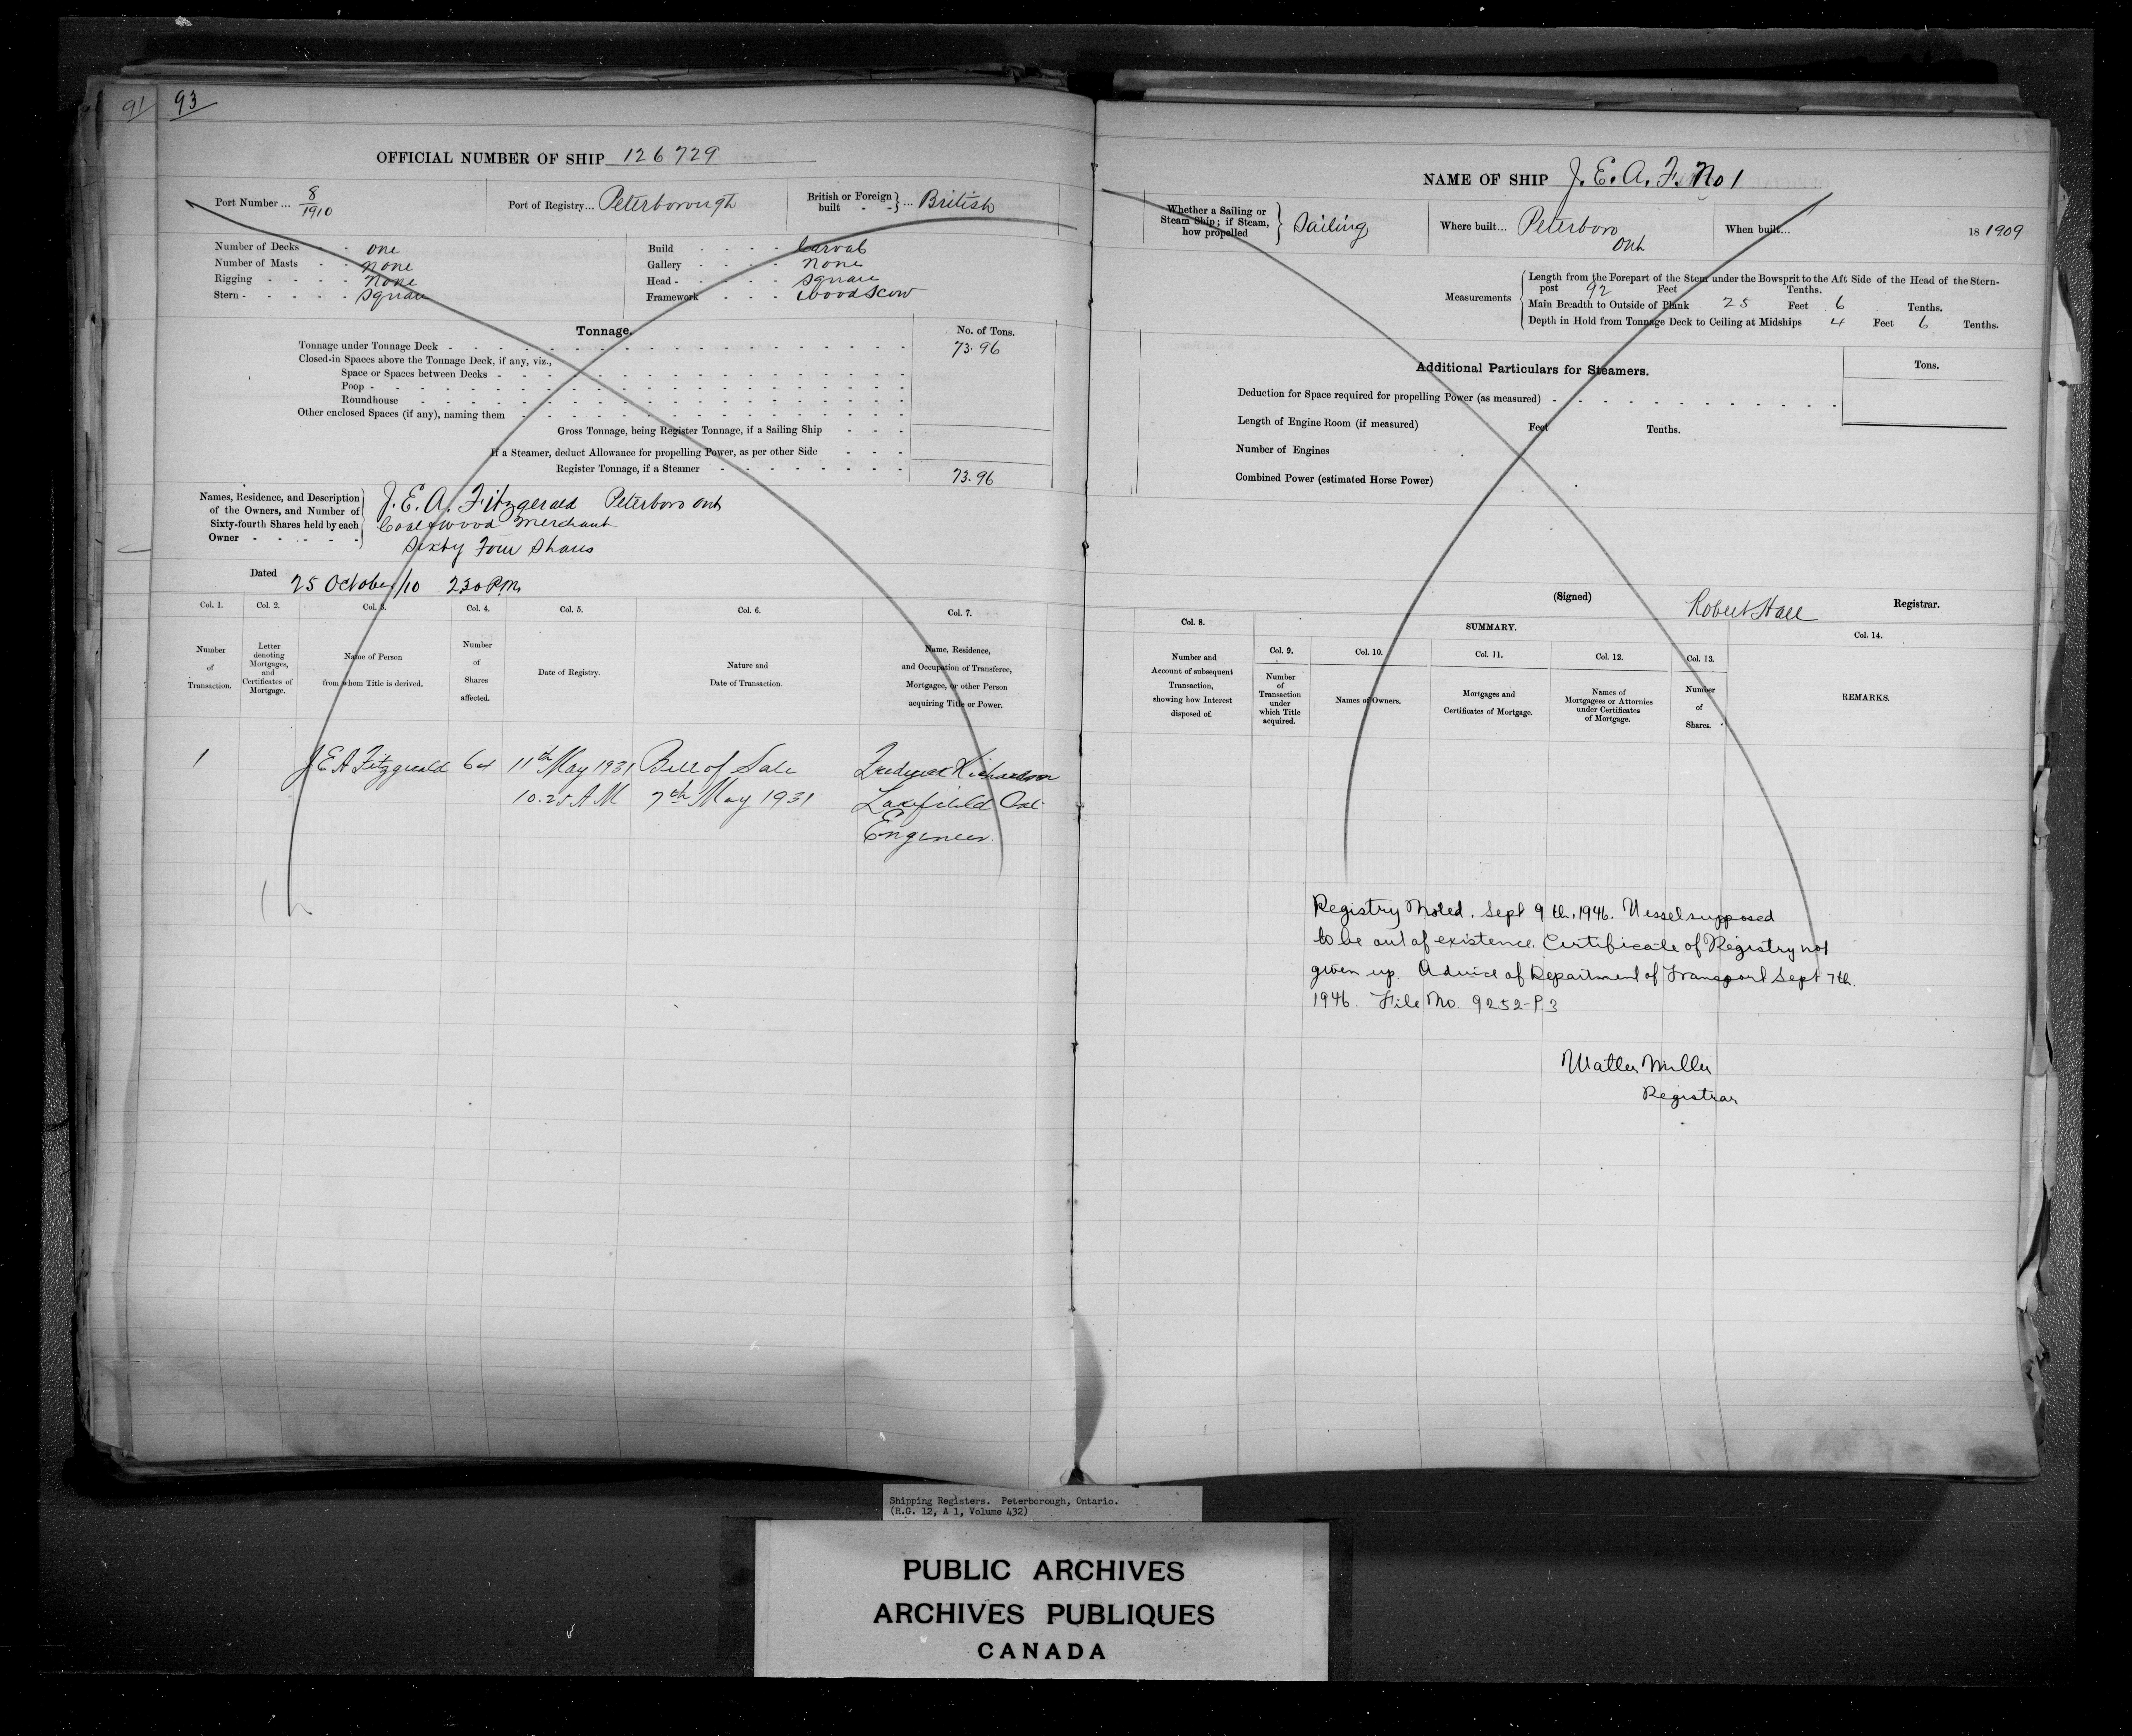 91
93
OFFICIAL NUMBER OF SHIP 126729
Port Number ... 8/1910
Port of Registry... Peterborough
British or Foreign built - - } ... British
Number of Decks - - one
Number of Masts - - none
Rigging - - - - none
Stern - - - - - square
Build - - - - Carval
Gallery - - - - none
Head - - - - - square
Framework - - - wood scow
Tonnage.
No. of Tons.
Tonnage under Tonnage Deck - 73.96
Closed-in Spaces above the Tonnage Deck, if any, viz.,
Space or Spaces between Decks -
Poop -
Roundhouse
Other enclosed Spaces (if any), naming them
Gross Tonnage, being Register Tonnage, if a Sailing Ship
If a Steamer, deduct Allowance for propelling Power, as per other Side
Register Tonnage, if a Steamer - 73.96
Names, Residence, and Description of the Owners, and Number of Sixty-fourth Shares held by each Owner - - - - -
J. E. A. Fitzgerald Peterboro Ont
Coal & wood Merchant
Sixty Four Shares
Dated 25 October/10 2.30 P.M.
Col. 1.
Number of Transaction.
Col. 2.
Letter denoting Mortgages, and Certificates of Mortgage.
Col. 3.
Name of Person from whom Title is derived.
Col. 4.
Number of Shares affected.
Col. 5.
Date of Registry.
Col. 6.
Nature and Date of Transaction.
Col. 7.
Name, Residence, and Occupation of Transferee, Mortgagee, or other Person acquiring Title or Power.
1 J E A Fitzgerald 64 11th May 1931 Bill of Sale Frederick Richardson
10.25 A M 7th May 1931 Lakefield Ont
Engineer.
NAME OF SHIP J. E. A. F. No 1
Whether a Sailing or Steam Ship; if Steam, how propelled } Sailing
Where built... Peterboro Ont
When built... 18 1909
Measurements
Length from the Forepart of the Stem under the Bowsprit to the Aft Side of the Head of the Stern-
post 92 Feet Tenths.
Main Breadth to Outside of Plank 25 Feet 6 Tenths.
Depth in Hold from Tonnage Deck to Ceiling at Midships 4 Feet 6 Tenths.
Additional Particulars for Steamers.
Tons.
Deduction for Space required for propelling Power (as measured) -
Length of Engine Room (if measured) Feet Tenths.
Number of Engines
Combined Power (estimated Horse Power)
(Signed) Robert Hall Registrar.
Col. 8.
Number and Account of subsequent Transaction, showing how Interest disposed of.
SUMMARY.
Col. 9.
Number of Transaction under which Title acquired.
Col. 10.
Names of Owners.
Col. 11.
Mortgages and Certificates of Mortgage.
Col. 12.
Names of Mortgagees or Attornies under Certificates of Mortgage.
Col. 13.
Number of Shares.
Col. 14.
REMARKS.
Registry Noted. Sept 9th, 1946. Vessel supposed
to be out of existence. Certificate of Registry not
given up. Advice of Department of Transport Sept 7th.
1946. File No. 9252-P.3
Walter Miller
Registrar
Shipping Registers. Peterborough, Ontario.
(R.G. 12, A 1, Volume 432)
PUBLIC ARCHIVES
ARCHIVES PUBLIQUES
CANADA